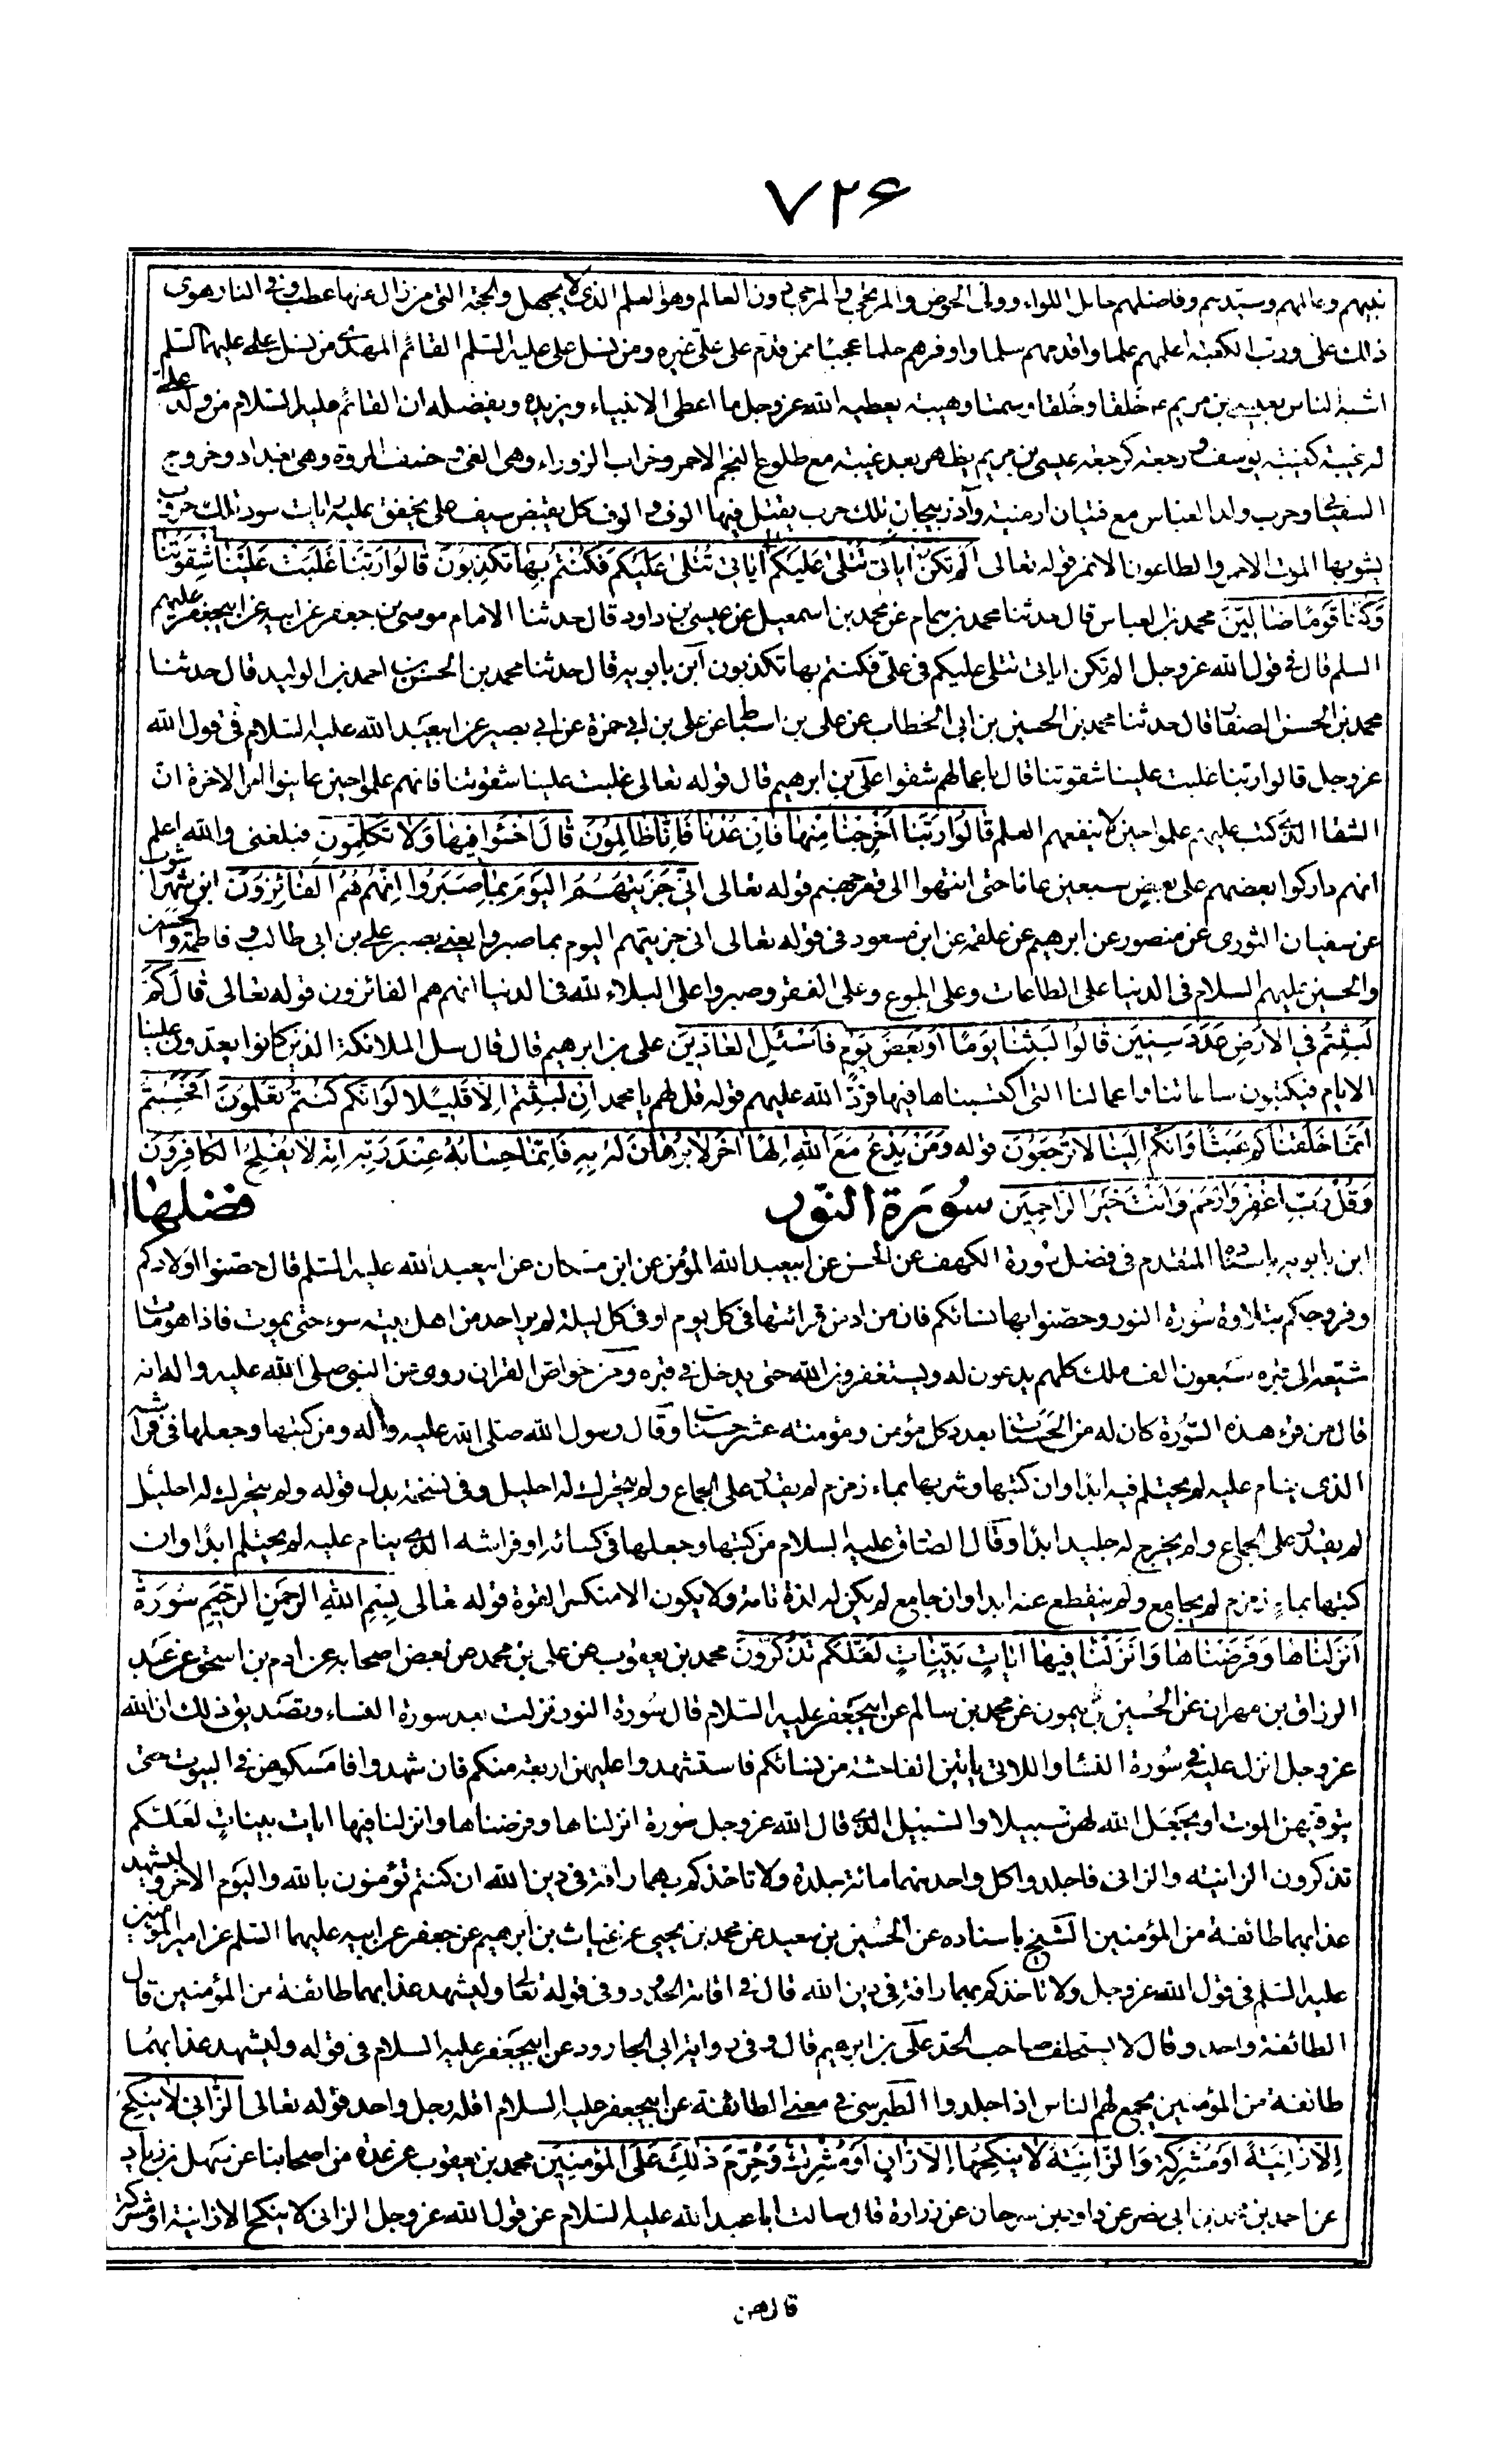 ٧٢۶
نبيهم وعالمهم وسيدهم وفاضلهم حامل اللواء وولى الحوض والمرتجى والمرجى دون العالم وهو العلم الذى لا يجهل والمحجة التى من زال عنها عطب وفى النار هوى
ذلك على ورب الكعبة اعلمهم علما واقدمهم سلما واوفرهم حلما عجبا ممن قدم على على غيره ومن نسل على عليه السلم القائم المهدى من نسل على عليهما السلم
اشبه الناس بعيسى بن مريم ع خلقا وخلقا وسمتا وهيبة يعطيه الله عز وجل ما اعطى الانبياء ويزيده ويفضله ان القائم عليه السلام من ولد على
له غيبة كغيبة يوسف ورجعة كرجعة عيسى بن مريم يظهر بعد غيبته مع طلوع النجم الاحمر وخراب الزوراء وهى الرى وخسف المزورة وهى بغداد وخروج
السفيانى وحرب ولد العباس مع فتيان ارمنية وآذربيجان تلك حرب يقتل فيها الوف والوف كل يقبض سيف محلى يخفق عليه رايات سود تلك حروب
يشوبها الموت الاحمر والطاعون الاغبر قوله تعالى الم تكن اياتى تتلى عليكم فكنتم بها تكذبون قالوا ربنا غلبت علينا شقوتنا
وكنا قوما ضالين محمد بن العباس قال حدثنا محمد بن همام عن محمد بن اسمعيل عن عيسى بن داود قال حدثنا الامام موسى بن جعفر عن ابيه عن ابيجعفر عليهم
السلم قال فى قول الله عز وجل الم تكن اياتى تتلى عليكم فى على فكنتم بها تكذبون ابن بابويه قال حدثنا محمد بن الحسن بن احمد بن الوليد قال حدثنا
محمد بن الحسن الصفار قال حدثنا محمد بن الحسين بن ابى الخطاب عن على بن اسباط عن على بن ابى حمزة عن ابى بصير عن ابيعبد الله عليه السلام فى قول الله
عز وجل قالوا ربنا غلبت علينا شقوتنا قال باعمالهم شقوا على بن ابرهيم قال قوله تعالى غلبت علينا شقوتنا فانهم علموا حين عاينوا امر الاخرة ان
الشقا الذى كتب عليهم علموا حين لا ينفعهم العلم قالوا ربنا اخرجنا منها فان عدنا فانا ظالمون قال اخسئوا فيها ولا تكلمون فبلغنى والله اعلم
انهم داركوا بعضهم على بعض سبعين عاما حتى انتهوا الى قعر جهنم قوله تعالى انى جزيتهم اليوم بما صبروا انهم هم الفائزون ابن شهراشوب
عن سفيان الثورى عن منصور عن ابرهيم عن علقمة عن ابن مسعود فى قوله تعالى انى جزيتهم اليوم بما صبروا يعنى بصبر على بن ابى طالب وفاطمة والحسن
والحسين عليهم السلام فى الدنيا على الطاعات وعلى الجوع وعلى الفقر وصبروا على البلاء لله فى الدنيا انهم هم الفائزون قوله تعالى قال كم
لبثتم فى الارض عدد سنين قالوا لبثنا يوما او بعض يوم فاسئل العادين على بن ابرهيم قال قال سل الملائكة الذين كانوا يعدون علينا
الايام فيكتبون ساعاتنا واعمالنا التى اكتسبناها فيها فرد الله عليهم قوله قل لهم يا محمد ان لبثتم الا قليلا لو انكم كنتم تعلمون افحسبتم
انما خلقناكم عبثا وانكم الينا لا ترجعون قوله ومن يدع مع الله الها اخر لا برهان له به فانما حسابه عند ربه انه لا يفلح الكافرون
وقل رب اغفر وارحم وانت خير الراحمين سورة النور فضلها
ابن بابويه باسناده المتقدم فى فضل سورة الكهف عن الحسن عن ابيعبد الله المؤمن عن ابن مسكان عن ابيعبد الله عليه السلم قال حصنوا اموالكم
وفروجكم بتلاوة سورة النور وحصنوا بها نسائكم فان من ادمن قرائتها فى كل يوم او فى كل ليلة لم ير احد من اهل بيته سوء حتى يموت فاذا هو مات
شيعه الى قبره سبعون الف ملك كلهم يدعون له ويستغفرون الله حتى يدخل فى قبره ومن خواص القران روى عن النبى صلى الله عليه واله انه
قال من قرء هذه السورة كان له من الحسنات بعدد كل مؤمن ومؤمنة عشر حسنات وقال رسول الله صلى الله عليه واله ومن كتبها وجعلها فى فراشه
الذى ينام عليه لم يحتلم فيه ابدا وان كتبها وشربها بماء زمزم لم يقدر على الجماع ولم يتحرك له احليل وفى نسخة بدل قوله ولم يتحرك له احليل
لم يقدر على الجماع ولم يخرج له جليد ابدا وقال الصادق عليه السلام من كتبها وجعلها فى كسائه او فراشه الذى ينام عليه لم يحتلم ابدا وان
كتبها بماء زمزم لم يجامع ولم ينقطع عنه ابدا وان جامع لم يكن له لذة تامة ولا يكون الا منكسر القوة قوله تعالى بسم الله الرحمن الرحيم سورة
انزلناها وفرضناها وانزلنا فيها ايات بينات لعلكم تذكرون محمد بن يعقوب عن على بن محمد عن بعض اصحابه عن ادم بن اسحق عن عبد
الرزاق بن مهران عن الحسين بن ميمون عن محمد بن سالم عن ابيجعفر عليه السلام قال سورة النور نزلت بعد سورة النساء وتصديق ذلك ان الله
عز وجل انزل عليه فى سورة النساء واللاتى ياتين الفاحشة من نسائكم فاستشهدوا عليهن اربعة منكم فان شهدوا فامسكوهن فى البيوت حتى
يتوفيهن الموت او يجعل الله لهن سبيلا والسبيل الذى قال الله عز وجل سورة انزلناها وفرضناها وانزلنا فيها ايات بينات لعلكم
تذكرون الزانية والزانى فاجلدوا كل واحد منهما مائة جلدة ولا تاخذكم بهما رافة فى دين الله ان كنتم تؤمنون بالله واليوم الاخر وليشهد
عذابهما طائفة من المؤمنين الشيخ باسناده عن الحسين بن سعيد عن محمد بن يحيى عن غياث بن ابرهيم عن جعفر عن ابيه عليهما السلم عن امير المؤمنين
عليه السلم فى قول الله عز وجل ولا تاخذكم بهما رافة فى دين الله قال فى اقامة الحدود وفى قوله تعالى وليشهد عذابهما طائفة من المؤمنين قال
الطائفة واحد وقال لا يستحلف صاحب الحد على بن ابرهيم قال وفى رواية ابى الجارود عن ابيجعفر عليه السلام فى قوله وليشهد عذابهما
طائفة من المؤمنين يجمع لهم الناس اذا جلدوا الطبرسى فى معنى الطائفة عن ابيجعفر عليه السلام اقله رجل واحد قوله تعالى الزانى لا ينكح
الا زانية او مشركة والزانية لا ينكحها الا زان او مشرك وحرم ذلك على المؤمنين محمد بن يعقوب عن عدة من اصحابنا عن سهل بن زياد
عن احمد بن محمد بن ابى نصر عن داود بن سرحان عن زرارة قال سالت ابا عبد الله عليه السلام عن قول الله عز وجل الزانى لا ينكح الا زانية او مشركة
قال هن